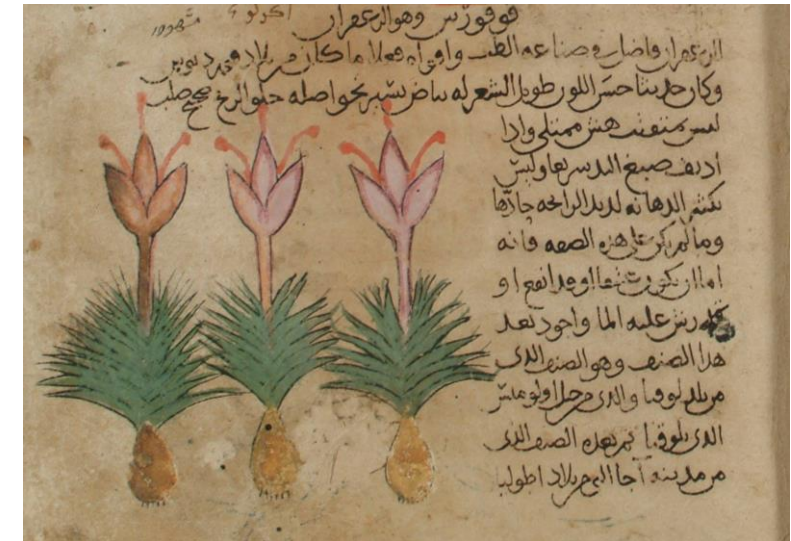 قوقورس وهو الزعفران
الزعفران فاضل في صناعة الطب واقواه فعلا ما كان من بلاد
وكان حديثا حسن اللون طويل الشعر له بياض يسير نحو اصله حلو الريح صحيح صلب
ليس متفتت هش ممتلي واذا
اديف صبغ اليد سريعا وليس
بكثير الدهانه لذيذ الرائحه حادها
وما لم يكن على هذه الصفه فانه
اما ان يكون عتيقا او قد انقع او
رش عليه الما واجود بعد
هذا الصنف وهو الصنف الذي
من بلد لوقيا والذي من جبل اولومبس
الذي بلوقيا ثم بعده الصنف الذي
من مدينه اجا التي من بلاد اطوليا